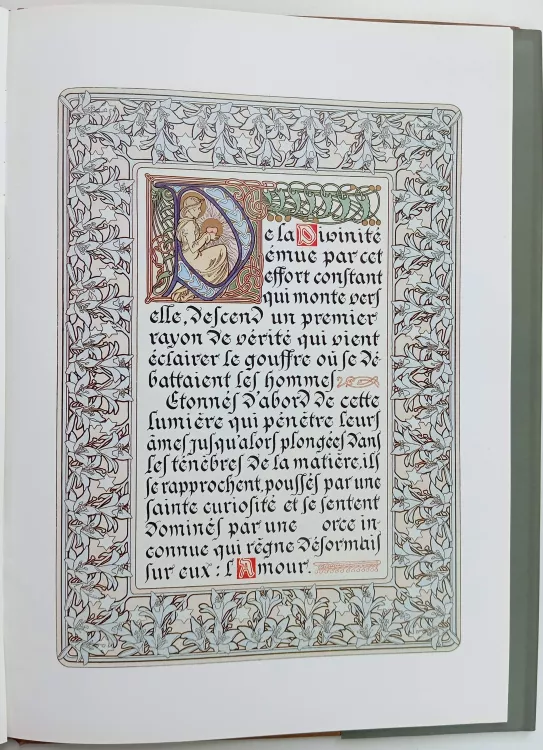 De la Divinité
émue par cet
effort constant
qui monte vers
elle, descend un premier
rayon de vérité qui vient
éclairer le gouffre où se dé-
battaient les hommes
Etonnés d'abord de cette
lumière qui pénètre leurs
âmes jusqu'alors plongées dans
les ténèbres de la matière, ils
se rapprochent, poussés par une
sainte curiosité et se sentent
dominés par une orce in-
connue qui règne désormais
sur eux : l'Amour.